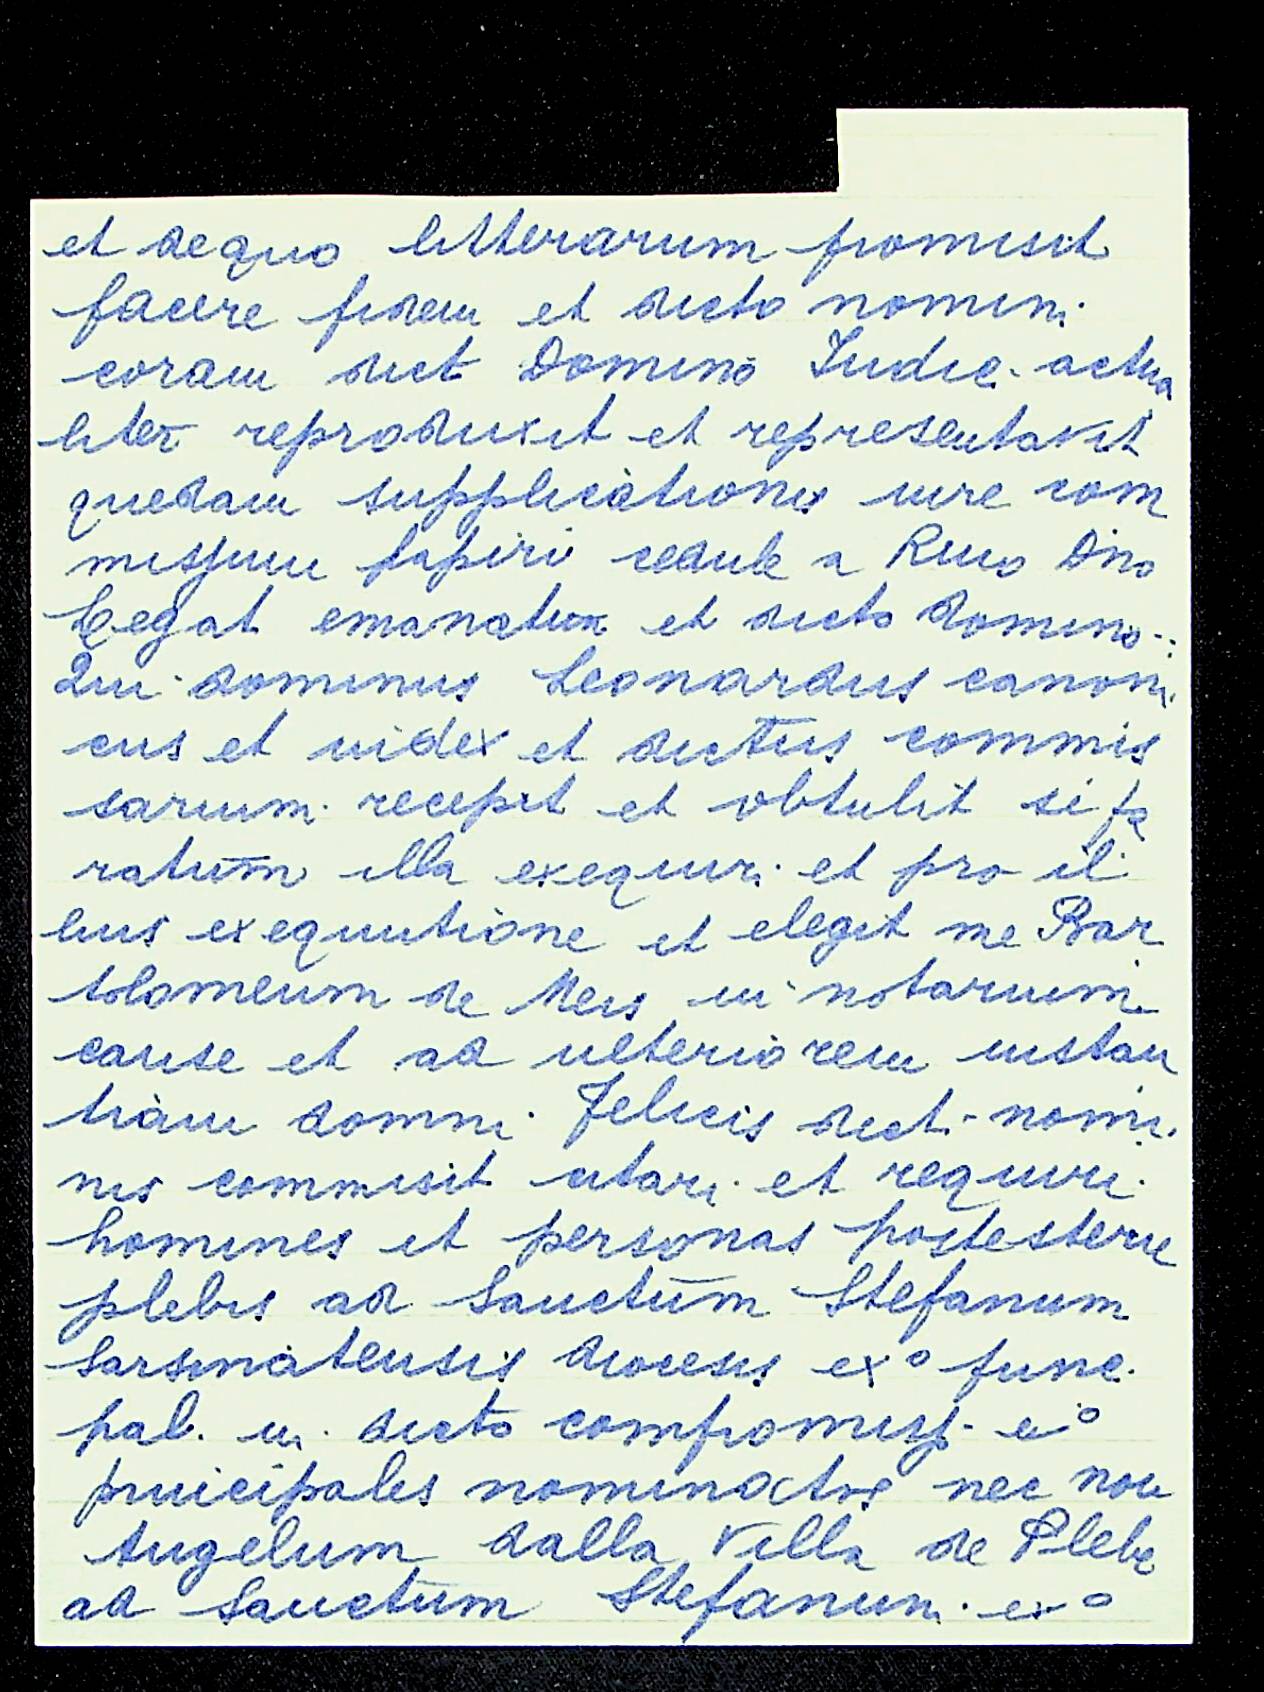 et de quo litterarum promisit
facere fidem et dicto nomin.
coram dict Domino Iudic. actua
liter reproduxit et representavit
quedam supplicationis iure com
missium papiri cedule a Rmo Dno
Legat emanatum et dicto domino.:
Qui dominus Leonardus canoni
cus et iudex et dictus commis
sarium. recepit et obtulit se pa
ratum illa exequir. et pro il
lius exequutione et elegit me Bar
tolomeum de Meis in notarium
cause et ad ulteriorem instan
tiam domni. Felicis dict. nomi
nis commisit citari. et requiri.
homines et personas poste sterre
plebis ad Sanctum Stefanum
Sarsinatensis diocesis ex° func.
pal. in. dicto compromiss. ei°
principales nominatos nec non
Angelum dalla Villa de Plebe
ad Sanctum Stefanum. ex°